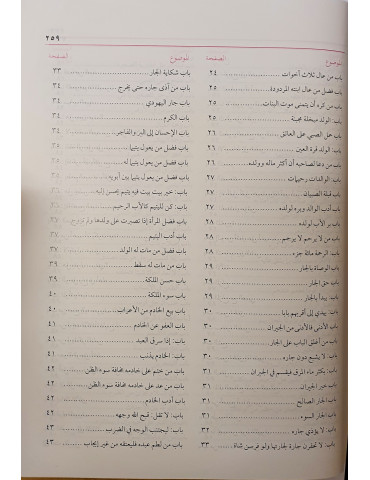 ٢٥٩
الموضوع الصفحة
باب من عال ثلاث أخوات ٢٤
باب فضل من عال ابنته المردودة ٢٥
باب من كره أن يتمنى موت البنات ٢٥
باب: الولد مبخلة مجبنة ٢٥
باب حمل الصبي على العاتق ٢٦
باب: الولد قرة العين ٢٦
باب من دعا لصاحبه أن أكثر ماله وولده ٢٦
باب: الوالدات رحيمات ٢٧
باب قبلة الصبيان ٢٧
باب أدب الوالد وبره لولده ٢٧
باب بر الأب لولده ٢٨
باب من لا يرحم لا يرحم ٢٨
باب: الرحمة مائة جزء ٢٨
باب الوصاة بالجار ٢٩
باب حق الجار ٢٩
باب: يبدأ بالجار ٢٩
باب: يهدي إلى أقربهم بابا ٣٠
باب: الأدنى فالأدنى من الجيران ٣٠
باب من أغلق الباب على الجار ٣٠
باب: لا يشبع دون جاره ٣٠
باب: يكثر ماء المرق فيقسم في الجيران ٣١
باب خير الجيران ٣١
باب الجار الصالح ٣١
باب الجار السوء ٣١
باب: لا يؤذي جاره ٣٢
باب: لا تحقرن جارة لجارتها ولو فرسن شاة ٣٣
الموضوع الصفحة
باب شكاية الجار ٣٣
باب من آذى جاره حتى يخرج ٣٤
باب جار اليهودي ٣٤
باب الكرم ٣٤
باب الإحسان إلى البر والفاجر ٣٤
باب فضل من يعول يتيما ٣٥
باب فضل من يعول يتيما له ٣٥
باب فضل من يعول يتيما بين أبويه ٣٥
باب: خير بيت بيت فيه يتيم يحسن إليه
باب: كن لليتيم كالأب الرحيم
باب فضل المرأة إذا تصبرت على ولدها ولم تتزوج ٣٧
باب أدب اليتيم ٣٧
باب فضل من مات له الولد ٣٧
باب من مات له سقط ٣٩
باب حسن الملكة ٣٩
باب سوء الملكة ٤٠
باب بيع الخادم من الأعراب ٤٠
باب العفو عن الخادم ٤١
باب: إذا سرق العبد ٤١
باب: الخادم يذنب ٤١
باب من ختم على خادمه مخافة سوء الظن ٤٢
باب من عد على خادمه مخافة سوء الظن ٤٢
باب أدب الخادم ٤٢
باب: لا تقل: قبح الله وجهه ٤٢
باب: ليجتنب الوجه في الضرب ٤٣
باب من لطم عبده فليعتقه من غير إيجاب ٤٣